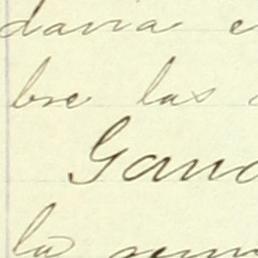 davia e
bre las
Gana
la